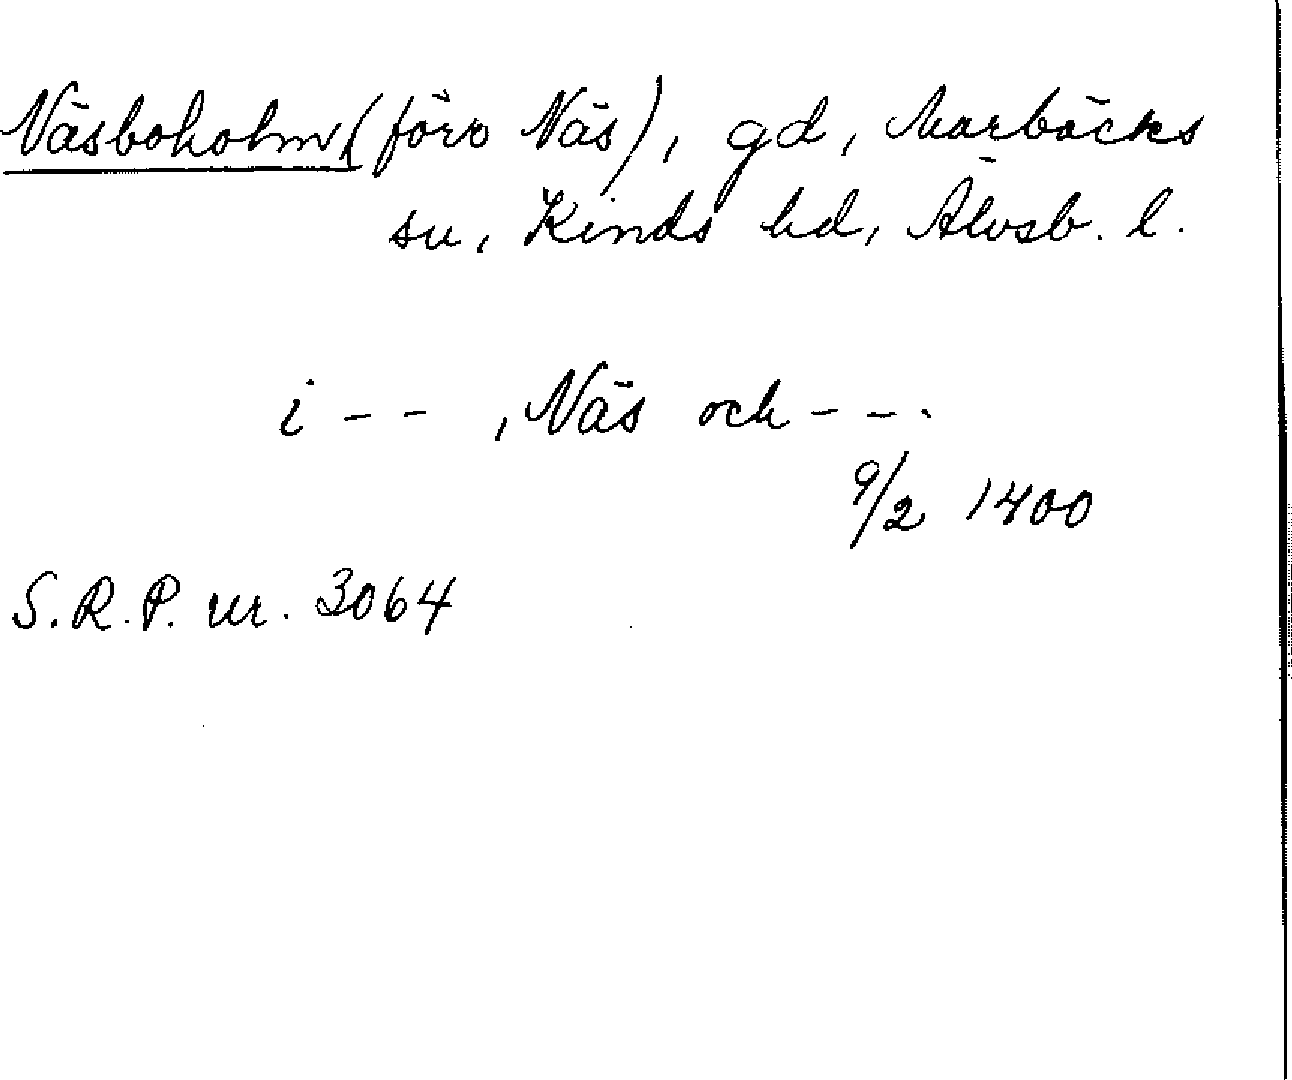 Näsboholm, (förr Näs), gd, Marbäcks
sn, Kinds hd, Älvsb. l.
i - - , Näs och - - -
9/2 1400
S.R.P. nr. 3064